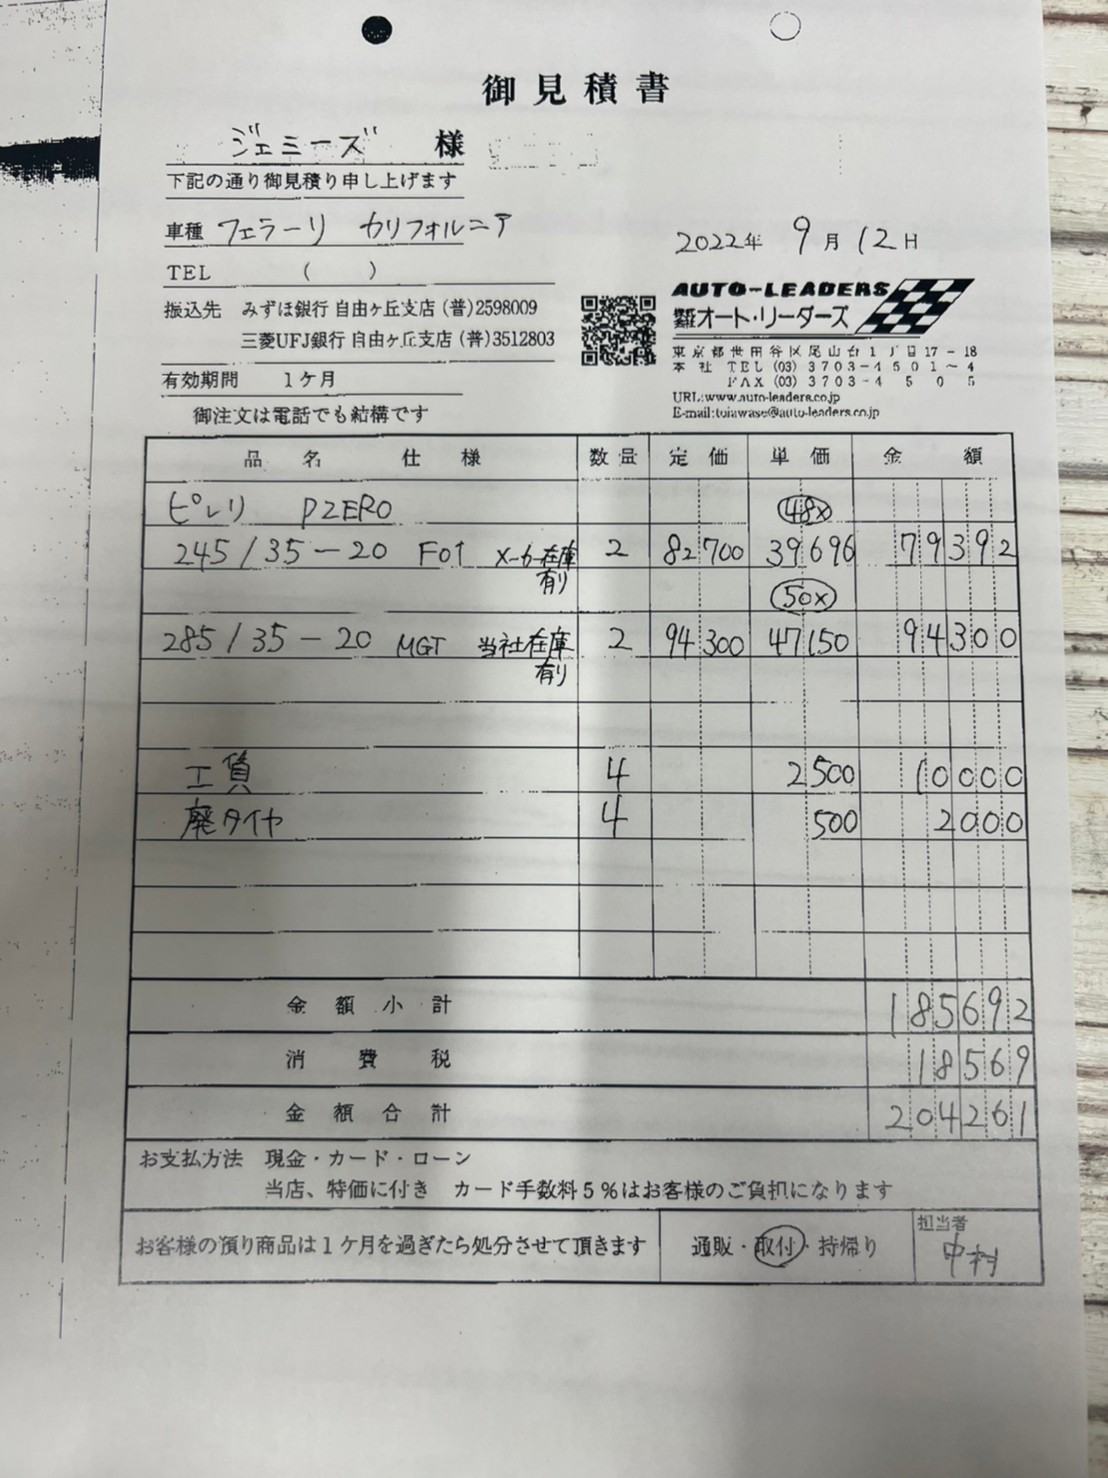 御見積書
ジェミーズ 様
下記の通り御見積り申し上げます
車種 フェラーリ カリフォルニア
2022年 9月12日
TEL ( )
振込先 みずほ銀行 自由ヶ丘支店 (普)2598009
三菱UFJ銀行 自由ヶ丘支店 (普)3512803
有効期間 1ヶ月
御注文は電話でも結構です
AUTO-LEADERS
株式会社オート・リーダーズ
東京都世田谷区尾山台1丁目17-18
本社 TEL (03) 3703-4501~4
FAX (03) 3703-4505
URL:www.auto-leaders.co.jp
E-mail:toiawase@auto-leaders.co.jp
品名 仕様 数量 定価 単価 金額
ピレリ PZERO 48%
245/35-20 F01 メーカー在庫有り 2 82700 39696 79392
50%
285/35-20 MGT 当社在庫有り 2 94300 47150 94300
工賃 4 2500 10000
廃タイヤ 4 500 2000
金額小計 185692
消費税 18569
金額合計 204261
お支払方法 現金・カード・ローン
当店、特価に付き カード手数料5%はお客様のご負担になります
お客様の預り商品は1ケ月を過ぎたら処分させて頂きます
通販・取付・持帰り
担当者
中村